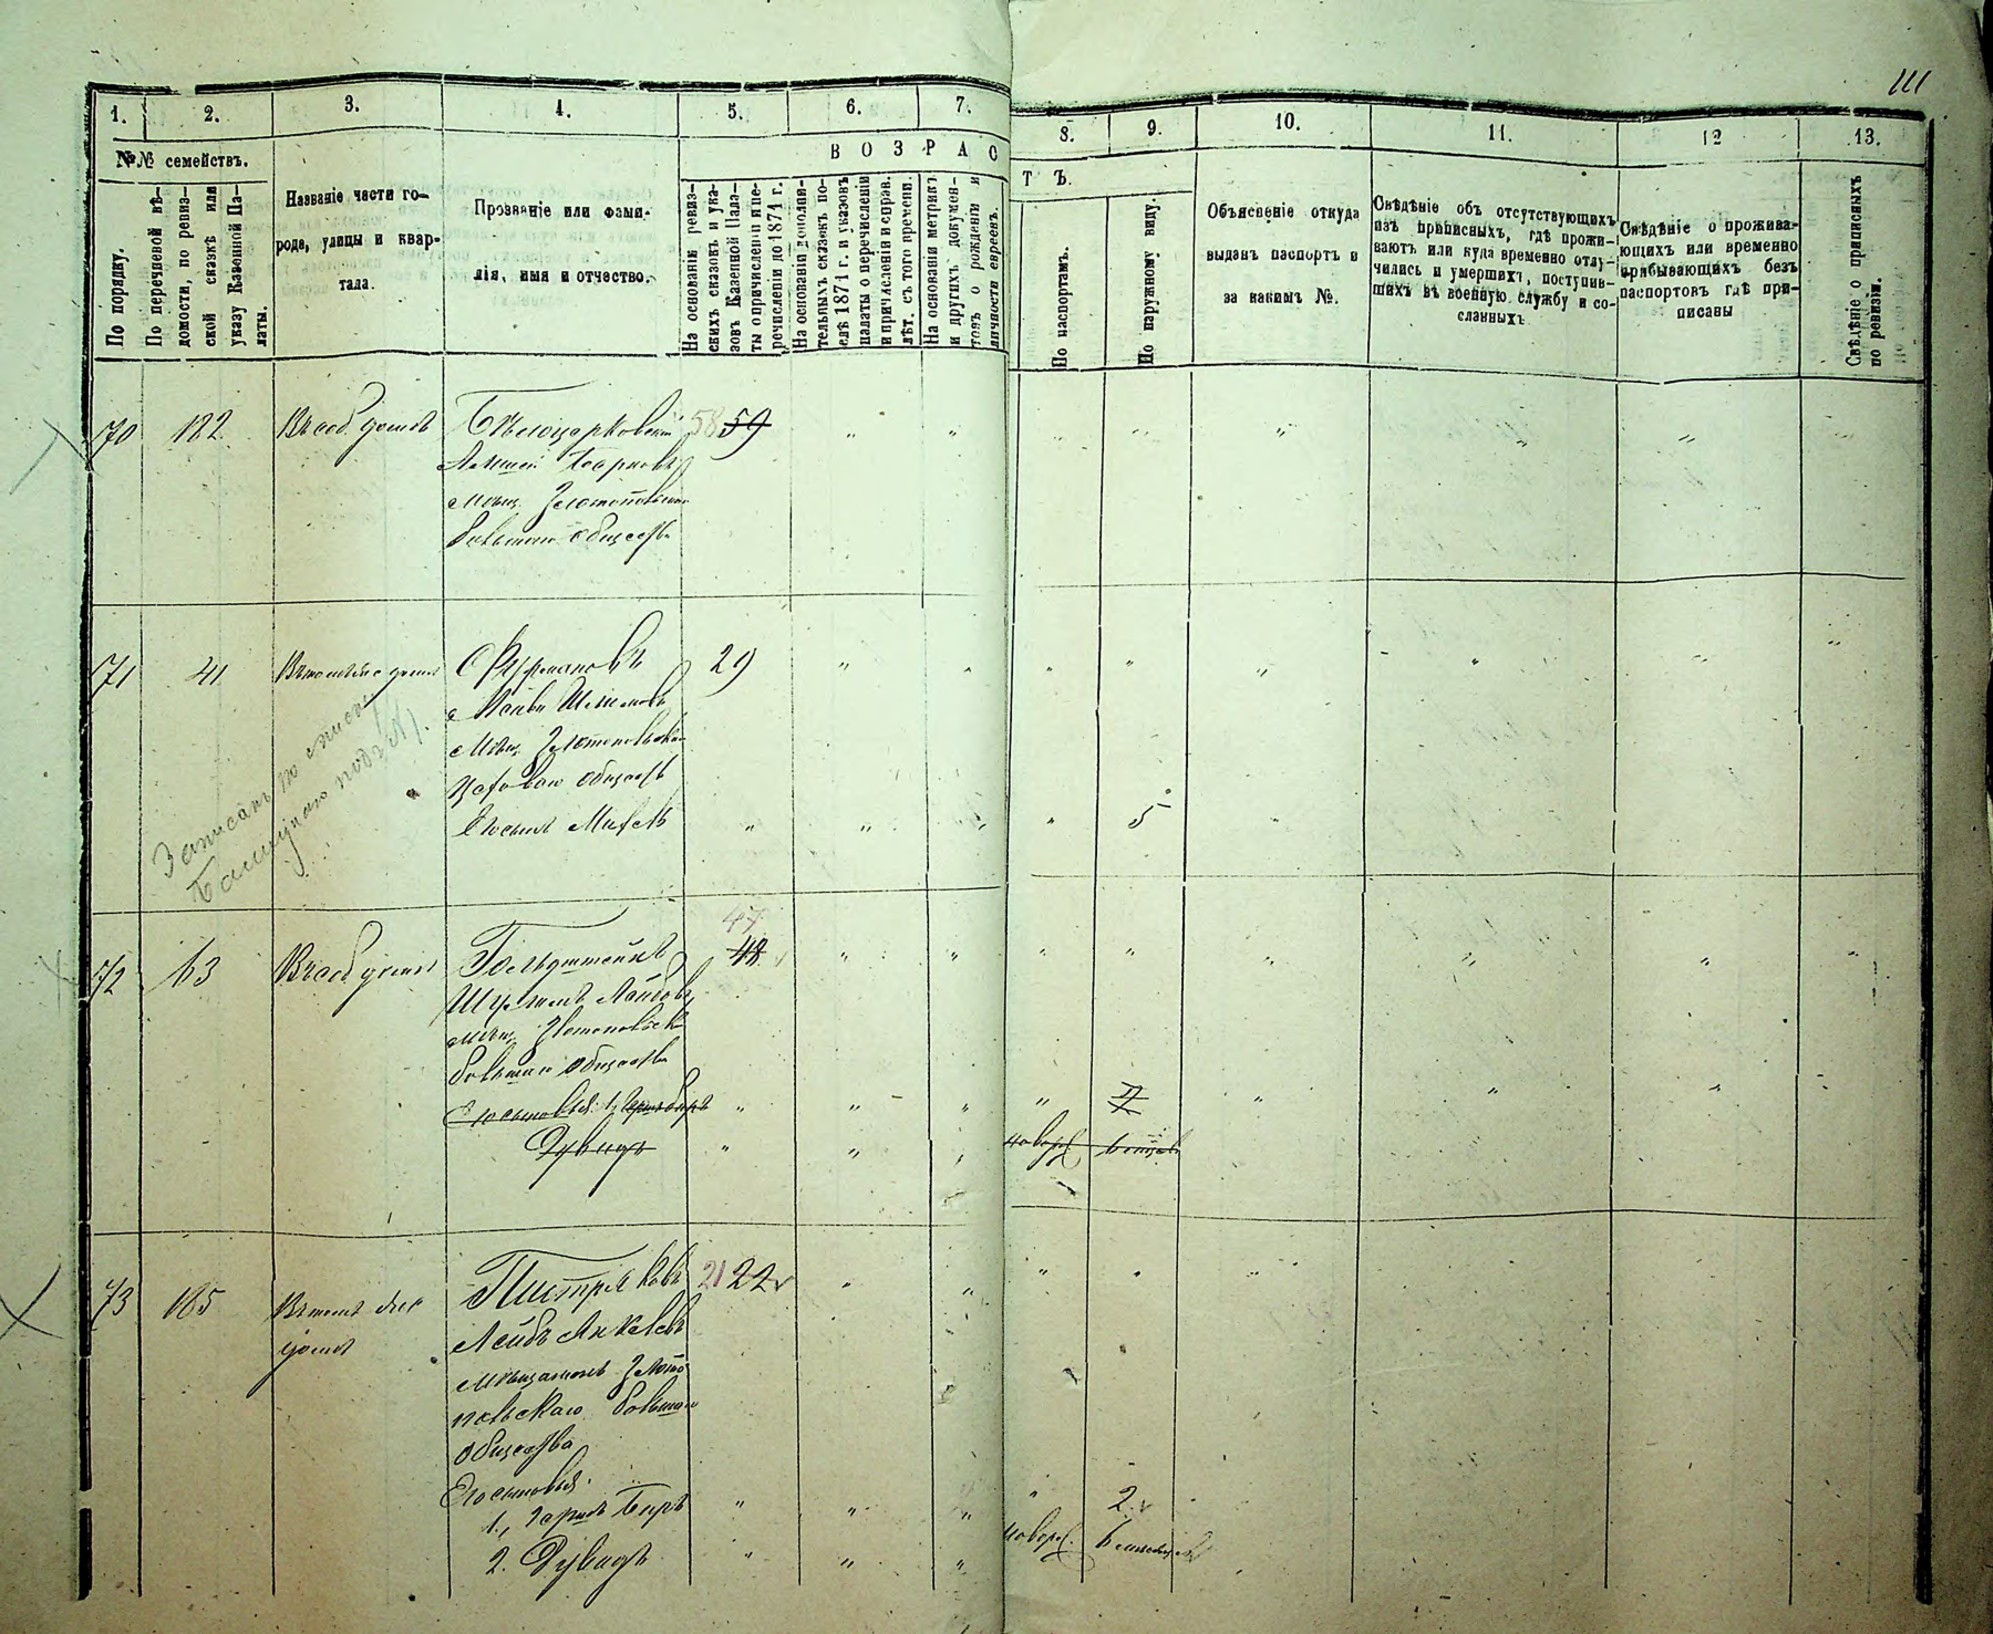 111
1.
2.
3.
4.
5.
6.
7.
8.
9.
10.
11.
12
13.
№№ семействъ.
ВОЗРАС
ТЪ.
По порядку.
По перечневой вѣ-
домости, по ревиз-
ской сказкѣ или
указу Казенной Па-
латы.
Названіе части го-
рода, улицы и квар-
тала.
Прозваніе или фами-
лія, имя и отчество.
На основаніи ревиз-
скихъ сказокъ и ука-
зовъ Казенной Пала-
ты о причисленіи и пе-
речисленіи до 1874 г.
На основаніи дополни-
тельныхъ сказокъ по-
слѣ 1874 г. и указовъ
палаты о перечисленіи
и причисленіи и справ.
лѣт. съ того времени.
На основаніи метрикъ
и другихъ докумен-
товъ о рожденіи и
личности евреевъ.
По паспортамъ.
По наружному виду.
Объясненіе откуда
выданъ паспортъ и
за какимъ №.
Свѣдѣніе объ отсутствующихъ
изъ приписныхъ, гдѣ прожи-
ваютъ или куда временно отлу-
чились и умершихъ, поступив-
шихъ въ военную службу и со-
сланныхъ
Свѣдѣніе о прожива-
ющихъ или временно
прибывающихъ безъ
паспортовъ гдѣ при-
писаны
Свѣдѣніе о приписныхъ
по ревизіи.
70 182 Въ соб. домѣ Бѣлоцерковскій 58 59
мѣщ. Златопольскаго
большаго общества
71 41 Фурмановъ 29
мѣщ. Златопольскаго
общества
Его сынъ 5
Записанъ по списку
72 63 Въ соб домѣ Гольдштейнъ 47 48
Шулимъ Лейбовъ
мѣщ. Златопольск
большаго общества
Его сыновья: 1, Гершъ Беръ 2
Дувидъ новорож. 6 мѣсяц.
73 185 Пистряковъ 21 22
домѣ
Лейбъ Янкелевъ
мѣщанинъ Злато
польскаго большаго
общества
Его сыновья:
1., Гершъ Беръ 2
2. Дувидъ новорож. 6 мѣсяцевъ